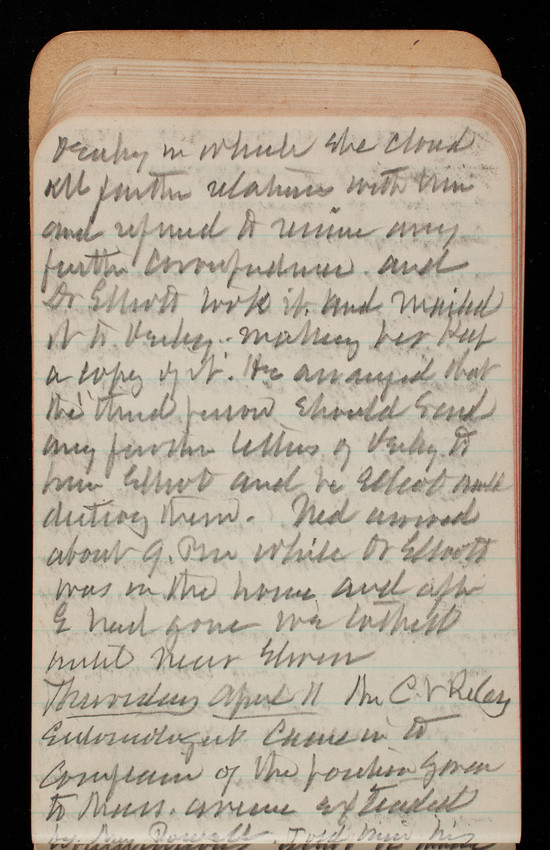 Veeley in which she closed
all further relations with him
and refused to receive any
further correspondence. and
Dr Elliott took it. and mailed
it to Veeley. making her keep
a copy of it. He arranged that
the "third person should send
any further letters of Veeley to
him Elliott and he Elliott would
destroy them. Ned arrived
about 9. Pm while Dr Elliott
was in the house and after
E had gone we talked
until near Eleven
Thursday April 11 Mr C. V Riley
Entomologist came in to
complain of the position given
to Mass. avenue extended
by Maj Powell. Told him his